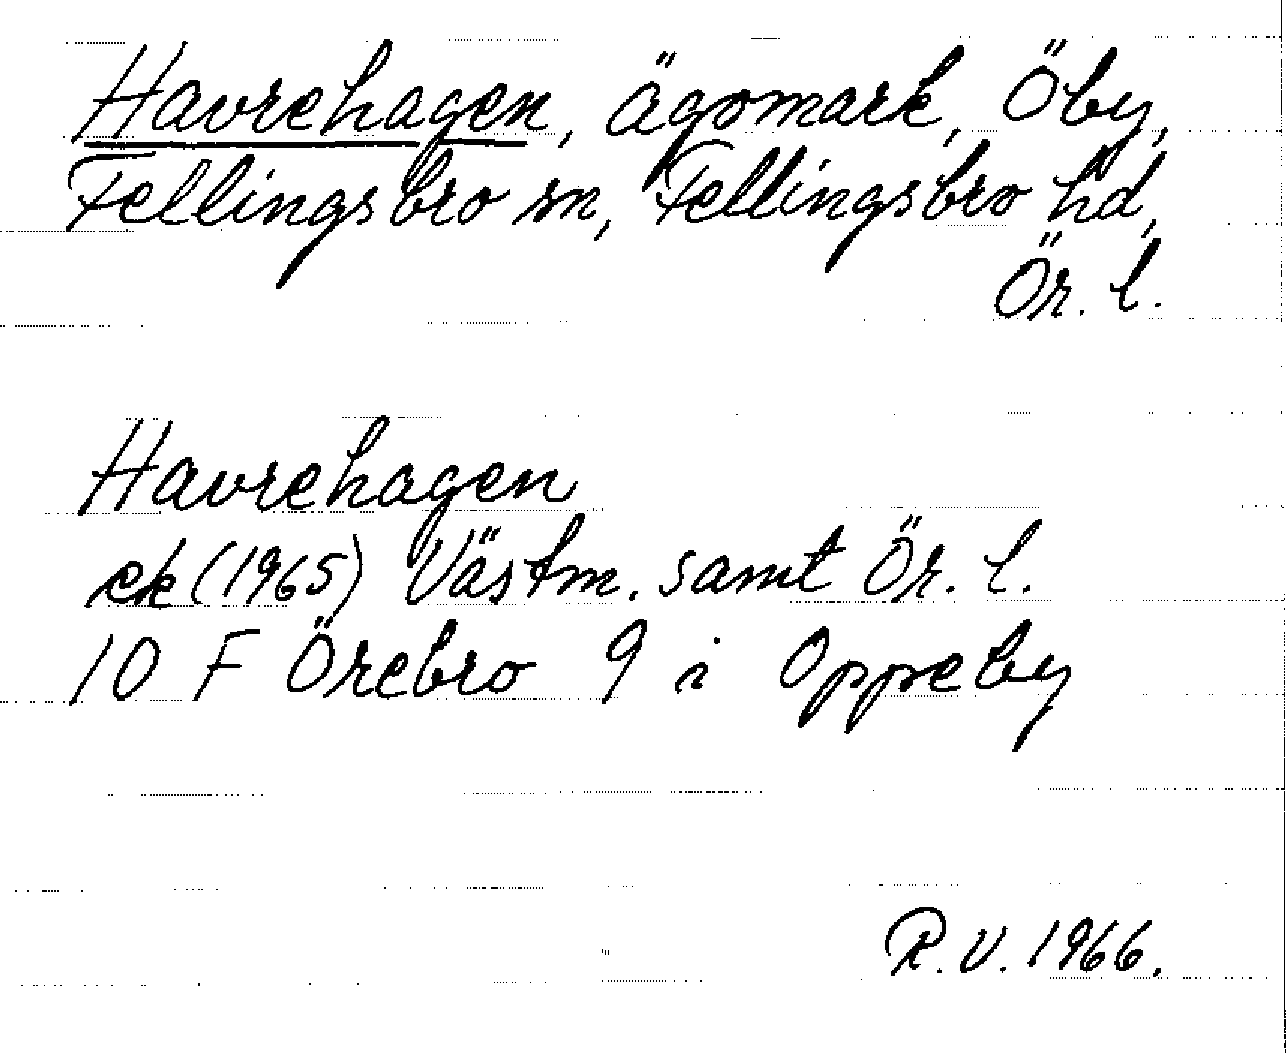 Havrehagen, ägomark, Öby,
Fellingsbro sn, Fellingsbro hd,
Ör. l.
Havrehagen
ek (1965) Västm. samt Ör. l.
10 F Örebro 9 i Oppeby
R.V. 1966.